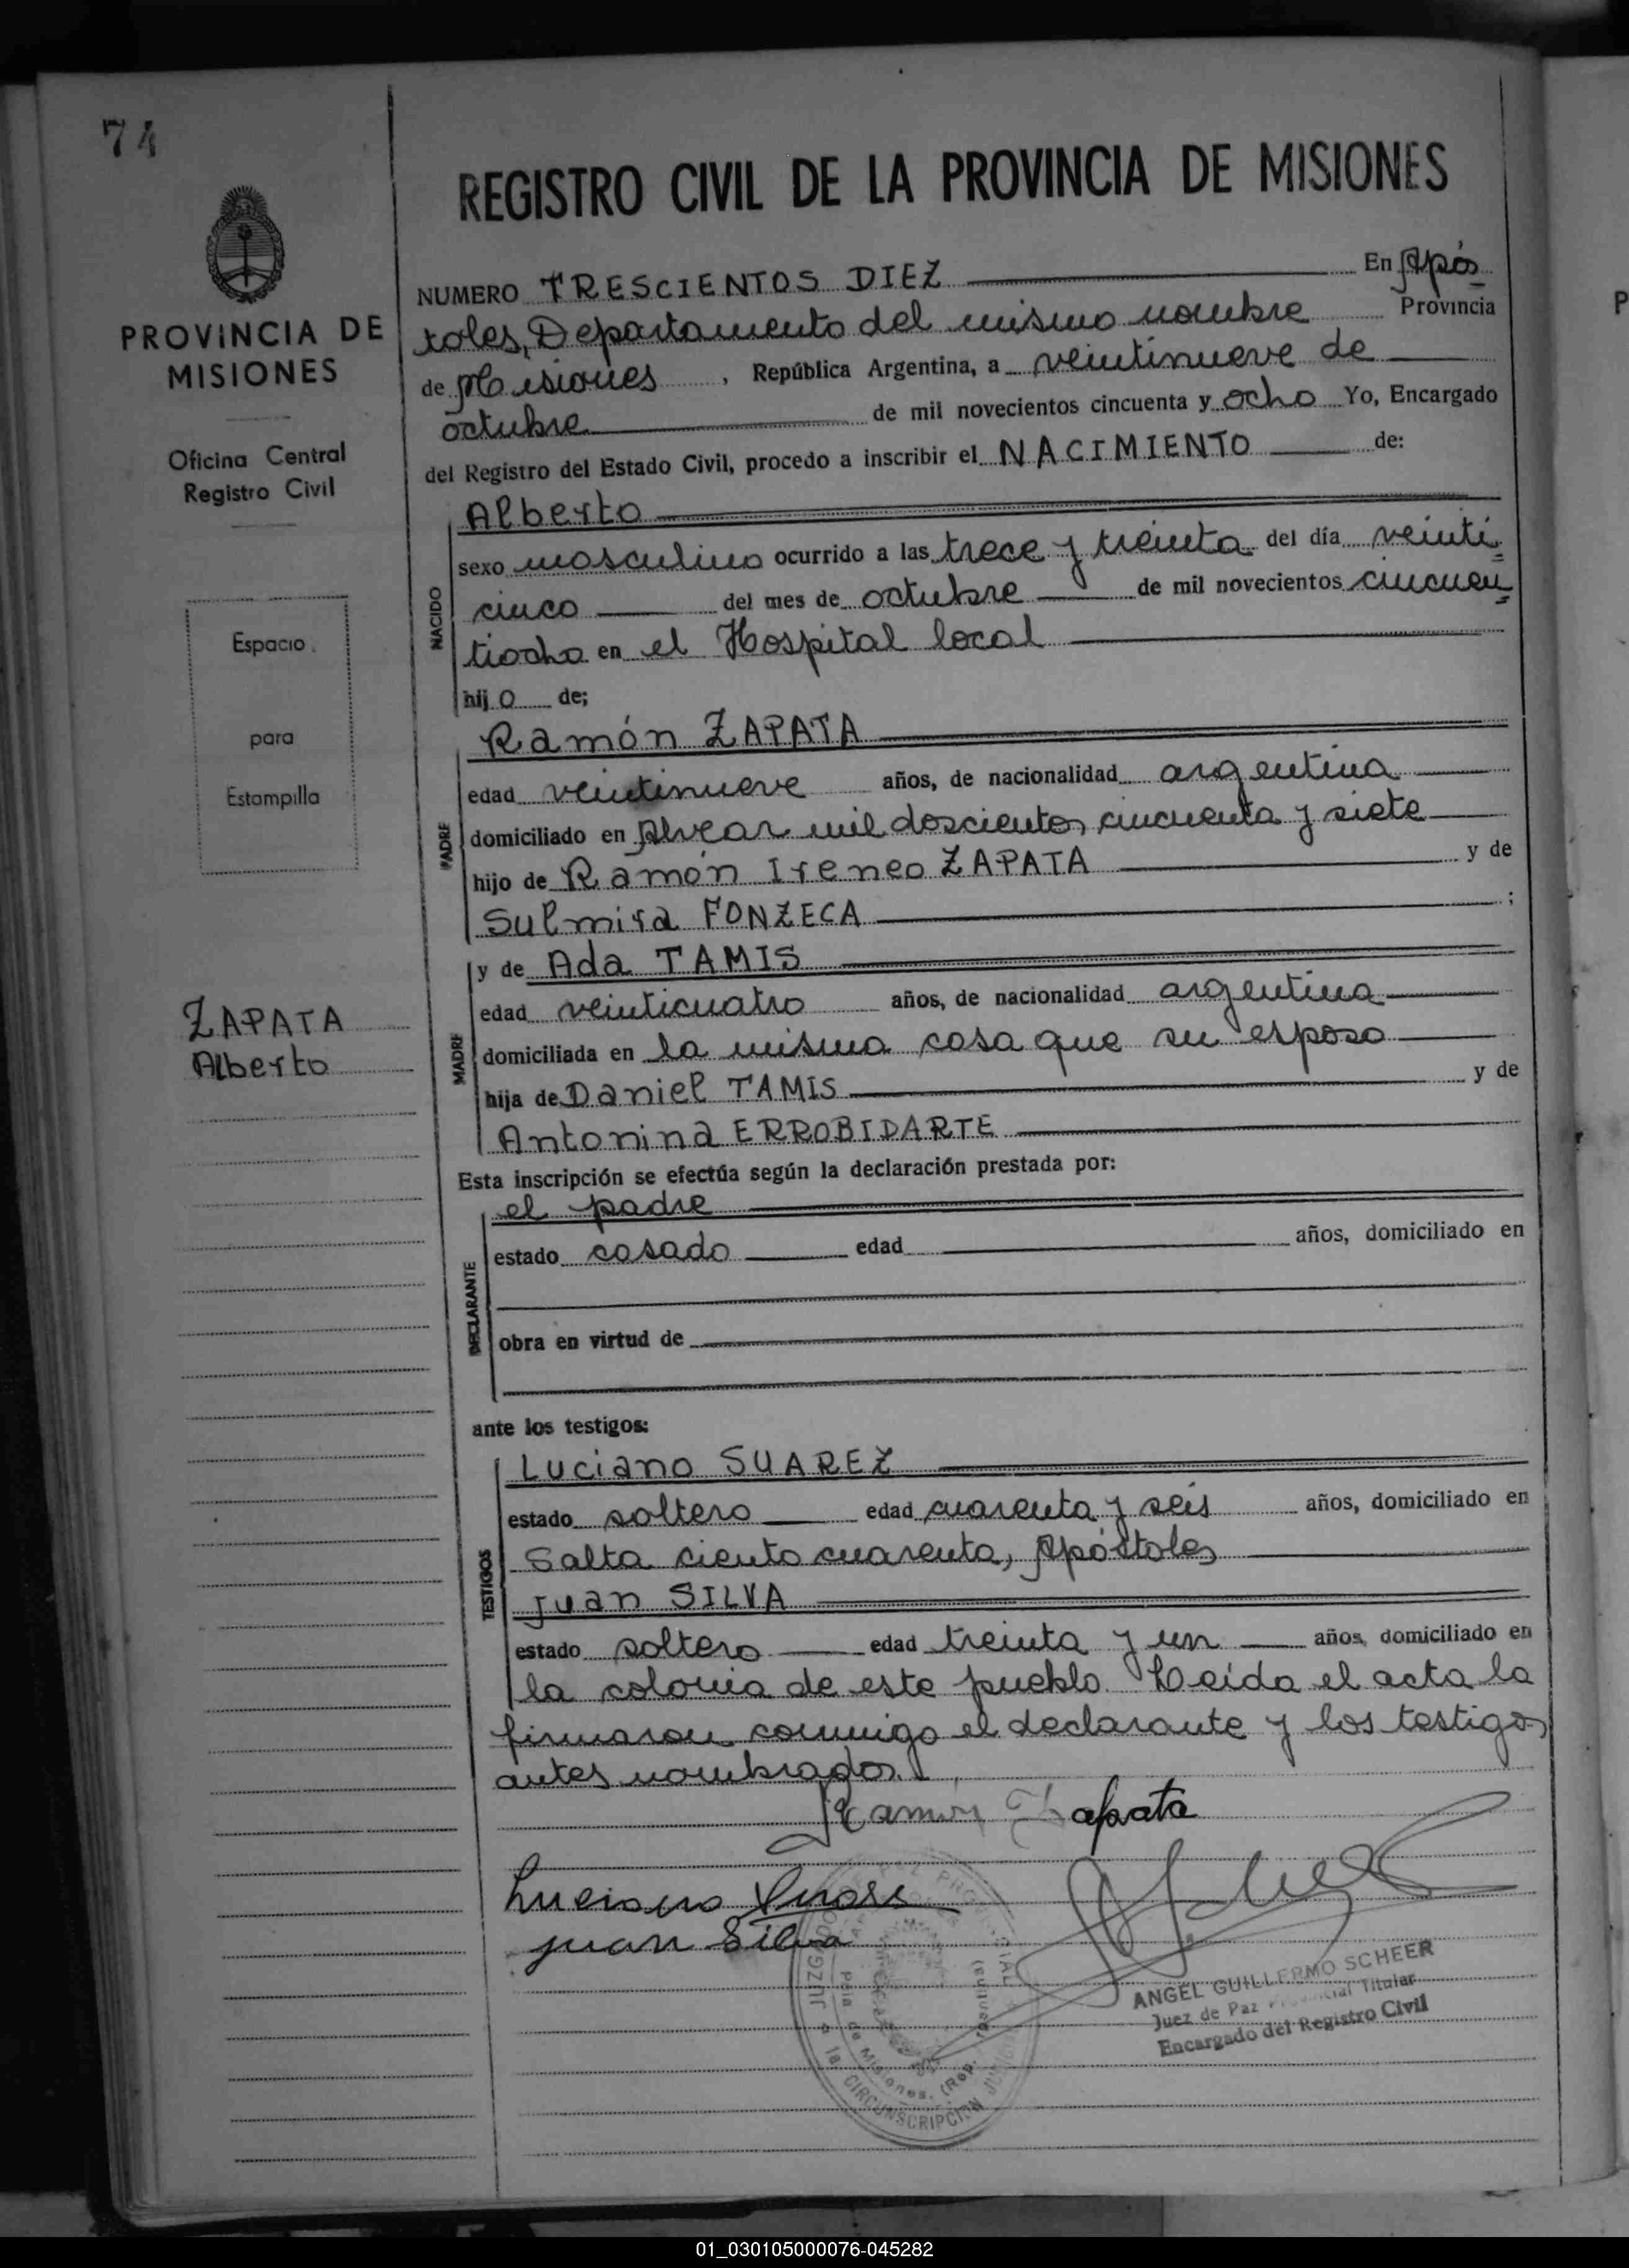 74
REGISTRO CIVIL DE LA PROVINCIA DE MISIONES
PROVINCIA DE
MISIONES
Oficina Central
Registro Civil
Espacio
para
Estampilla
ZAPATA
Alberto
NUMERO TRESCIENTOS DIEZ En Após
toles, Departamento del mismo nombre Provincia
de Misiones, República Argentina, a veintinueve de
octubre de mil novecientos cincuenta y ocho Yo, Encargado
del Registro del Estado Civil, procedo a inscribir el NACIMIENTO de:
NACIDO
Alberto
sexo masculino ocurrido a las trece y treinta del día veinti=
cinco del mes de octubre de mil novecientos cincuen=
tiocho en el Hospital local
hijo de;
PADRE
Ramón ZAPATA
edad veintinueve años, de nacionalidad argentina
domiciliado en Alvear mil doscientos cincuenta y siete
hijo de Ramón Ireneo ZAPATA y de
Sulmira FONZECA ;
MADRE
y de Ada TAMIS
edad veinticuatro años, de nacionalidad argentina
domiciliada en la misma casa que su esposo
hija de Daniel TAMIS y de
Antonina ERROBIDARTE
Esta inscripción se efectúa según la declaración prestada por:
DECLARANTE
el padre
estado casado edad años, domiciliado en
obra en virtud de
ante los testigos:
TESTIGOS
Luciano SUAREZ
estado soltero edad cuarenta y seis años, domiciliado en
Salta ciento cuarenta, Apóstoles
Juan SILVA
estado soltero edad treinta y un años, domiciliado en
la colonia de este pueblo. Leída el acta la
firmaron conmigo el declarante y los testigos
antes nombrados.
Ramon Zapata
Luciano Suares
Juan Silva
ANGEL GUILLERMO SCHEER
Juez de Paz Provincial Titular
Encargado del Registro Civil
JUZGADO
CIRCUNSCRIPCION
01_030105000076-045282